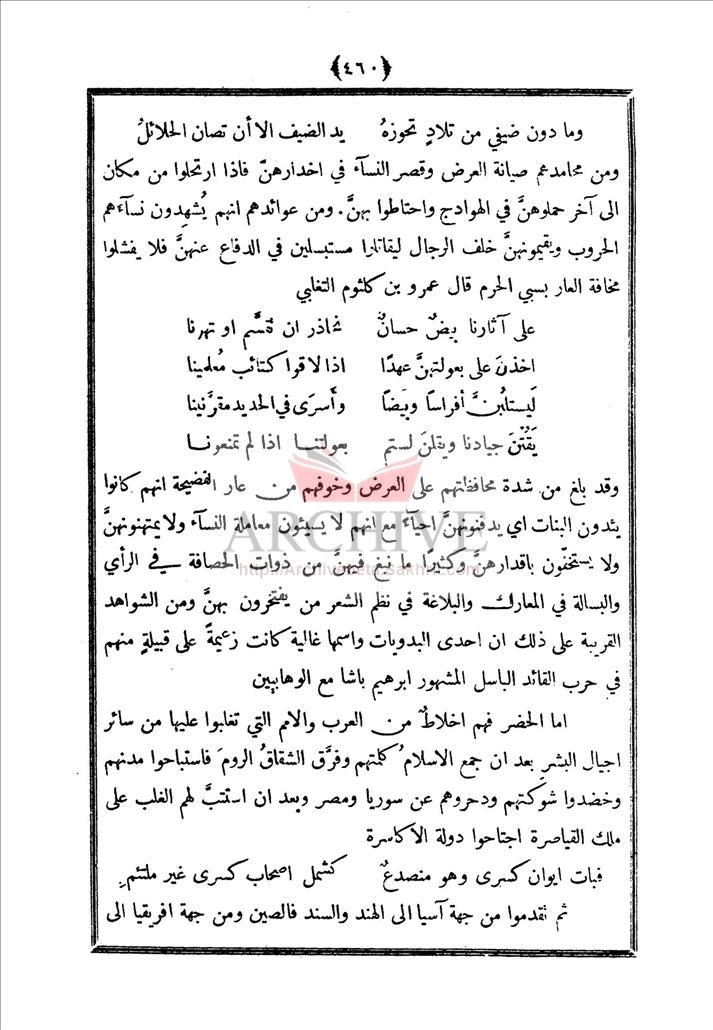 ﴿٤٦٠﴾
وما دون ضيفي من تلادٍ تحوزهُ يد الضيف الا أن تصان الحلائلُ
ومن محامدهم صيانة العرض وقصر النسآء في اخدارهنّ فاذا ارتحلوا من مكان
الى آخر حملوهنَّ في الهوادج واحتاطوا بهنَّ. ومن عوائدهم انهم يُشهِدون نسآءهم
الحروب ويقيمونهنَّ خلف الرجال ليقاتلوا مستبسلين في الدفاع عنهنَّ فلا يفشلوا
مخافة العار بسبي الحرم قال عمرو بن كلثوم التغلبي
على آثارنا بيضٌ حسانٌ نحاذر ان تقسَّم او تهونا
اخذنَ على بعولتهنَّ عهدًا اذا لاقوا كتائب مُعلمينا
لَيستلبُنَّ أفراسًا وبَيضًا وأسرَى في الحديد مقرَّنينا
يَقُتنَ جيادنا ويقلنَ لستم بعولتنا اذا لم تمنعونا
وقد بلغ من شدة محافظتهم على العرض وخوفهم من عار الفضيحة انهم كانوا
يئدون البنات اي يدفنونهنَّ احيآءً مع انهم لا يسيئون معاملة النسآء ولا يمتهنونهنَّ
ولا يستخفّون باقدارهنَّ وكثيرًا ما نبغ فيهنَّ من ذوات الحصافة في الرأي
والبسالة في المعارك والبلاغة في نظم الشعر من يفتخرون بهنَّ ومن الشواهد
القريبة على ذلك ان احدى البدويات واسمها غالية كانت زعيمةً على قبيلةٍ منهم
في حرب القائد الباسل المشهور ابرهيم باشا مع الوهابيين
اما الحضر فهم اخلاطٌ من العرب والامم التي تغلبوا عليها من سائر
اجيال البشر بعد ان جمع الاسلامُ كلمتهم وفرَّق الشقاقُ الرومَ فاستباحوا مدنهم
وخضدوا شوكتهم ودحروهم عن سوريا ومصر وبعد ان استتبَّ لهم الغلب على
ملك القياصرة اجتاحوا دولة الاكاسرة
فبات ايوان كسرى وهو منصدعٌ كشمل اصحاب كسرى غير ملتئمِ
ثم تقدموا من جهة آسيا الى الهند والسند فالصين ومن جهة افريقيا الى
ARCHIVE